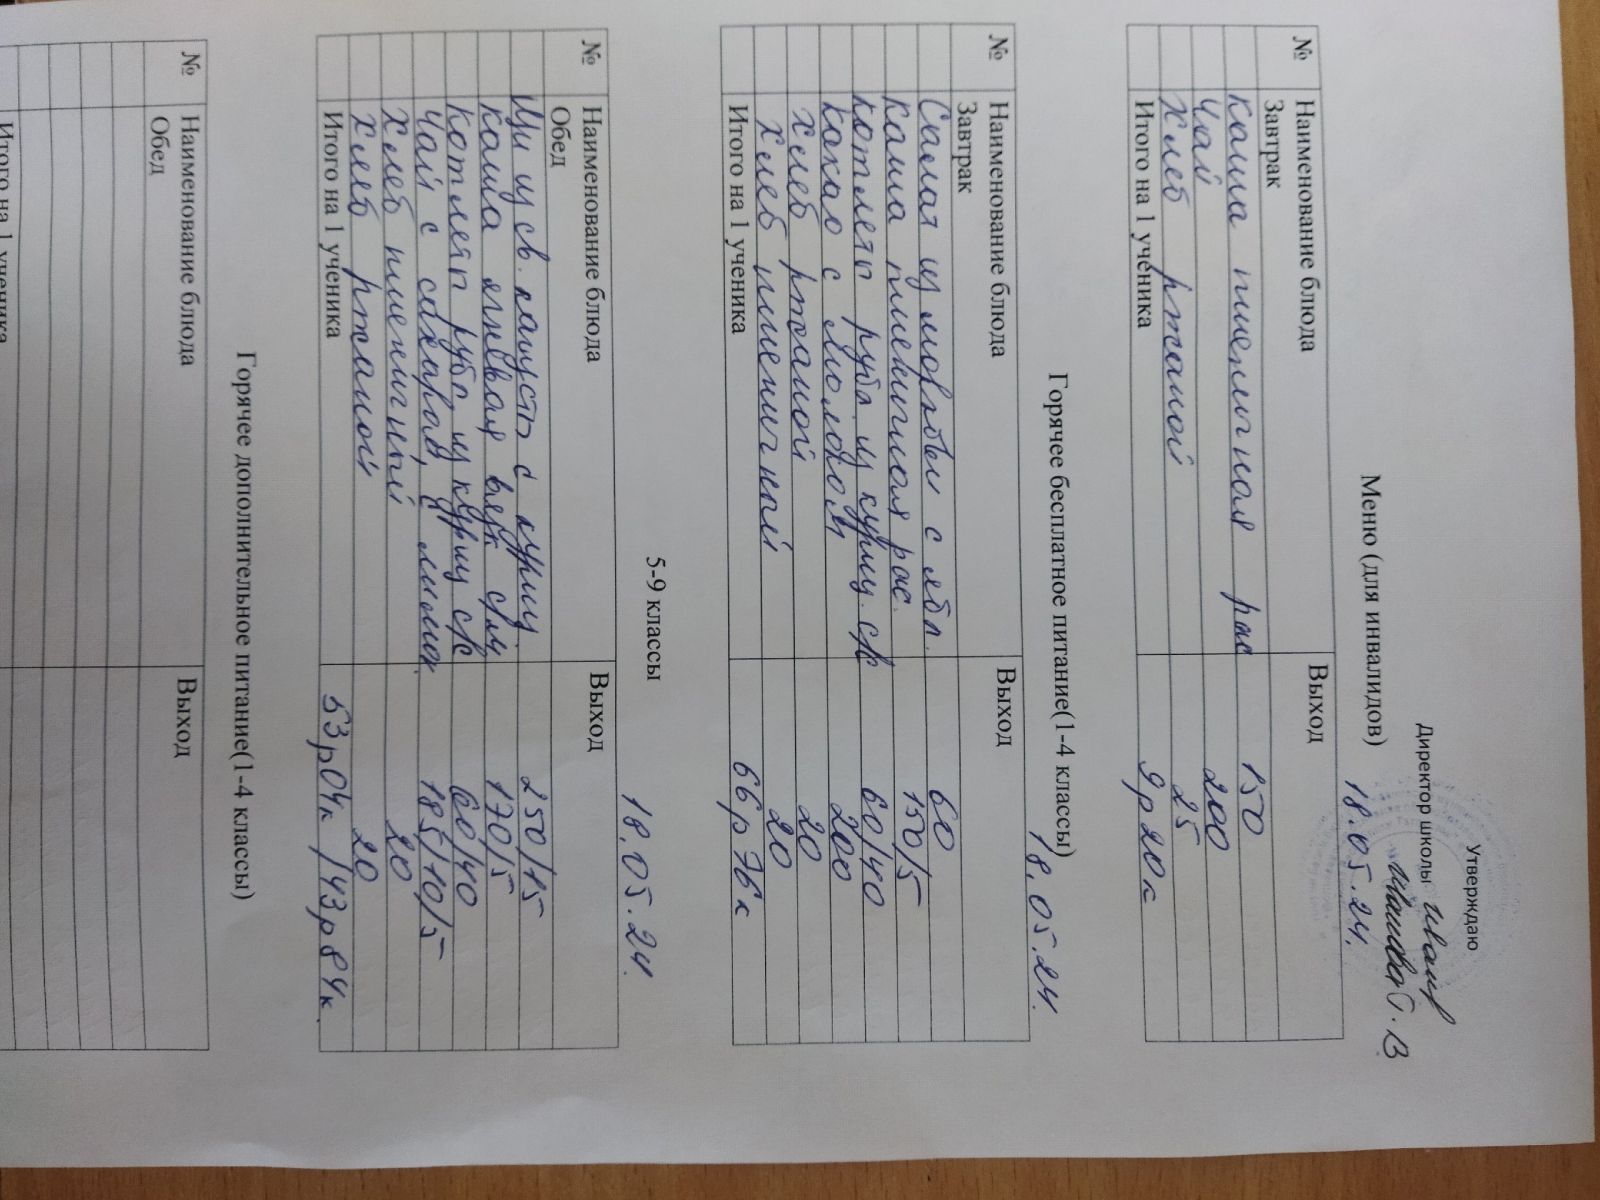 Утверждаю
Директор школы
Меню (для инвалидов) 18.05.24.
№ Наименование блюда Выход
Завтрак
Каша пшеничная рас 150
Чай 200
Хлеб ржаной 25
Итого на 1 ученика 9р 20к
Горячее бесплатное питание(1-4 классы) 18.05.24.
№ Наименование блюда Выход
Завтрак
Салат из моркови с ябл. 60
Каша пшеничная рас. 150/5
Котлеты руб. из куриц. с/к 60/40
Какао с молоком 200
Хлеб ржаной 20
Хлеб пшеничный 20
Итого на 1 ученика 66р 76к
5-9 классы 18.05.24.
№ Наименование блюда Выход
Обед
Щи из св. капусты с куриц. 250/15
Каша ячневая вязк с/м 170/5
Котлеты руб. из куриц с/к 60/40
Чай с сахаром, с лимон. 185/10/5
Хлеб пшеничный 20
Хлеб ржаной 20
Итого на 1 ученика 53р04к /43р84к.
Горячее дополнительное питание(1-4 классы)
№ Наименование блюда Выход
Обед
Итого на 1 ученика